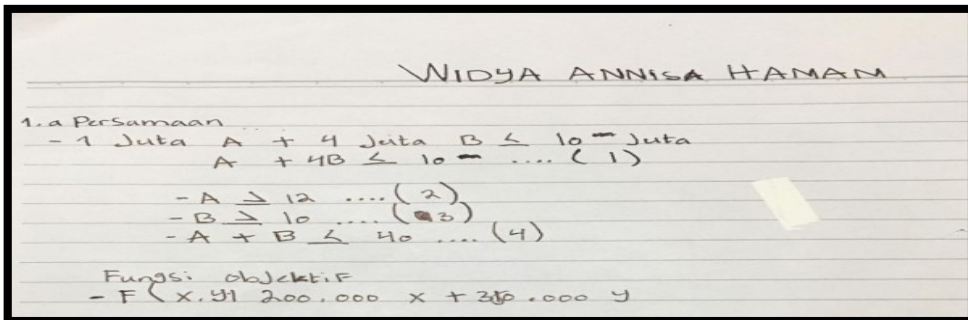 WIDYA ANNISA HAMAM
1. a Persamaan
- 1 Juta A + 4 Juta B ≤ 10 - Juta
A + 4B ≤ 10 - .... (1)
- A ≥ 12 .... (2)
- B ≥ 10 .... (3)
- A + B ≤ 40 .... (4)
Fungsi objektif
- F (x.y) 200.000 x + 350.000 y